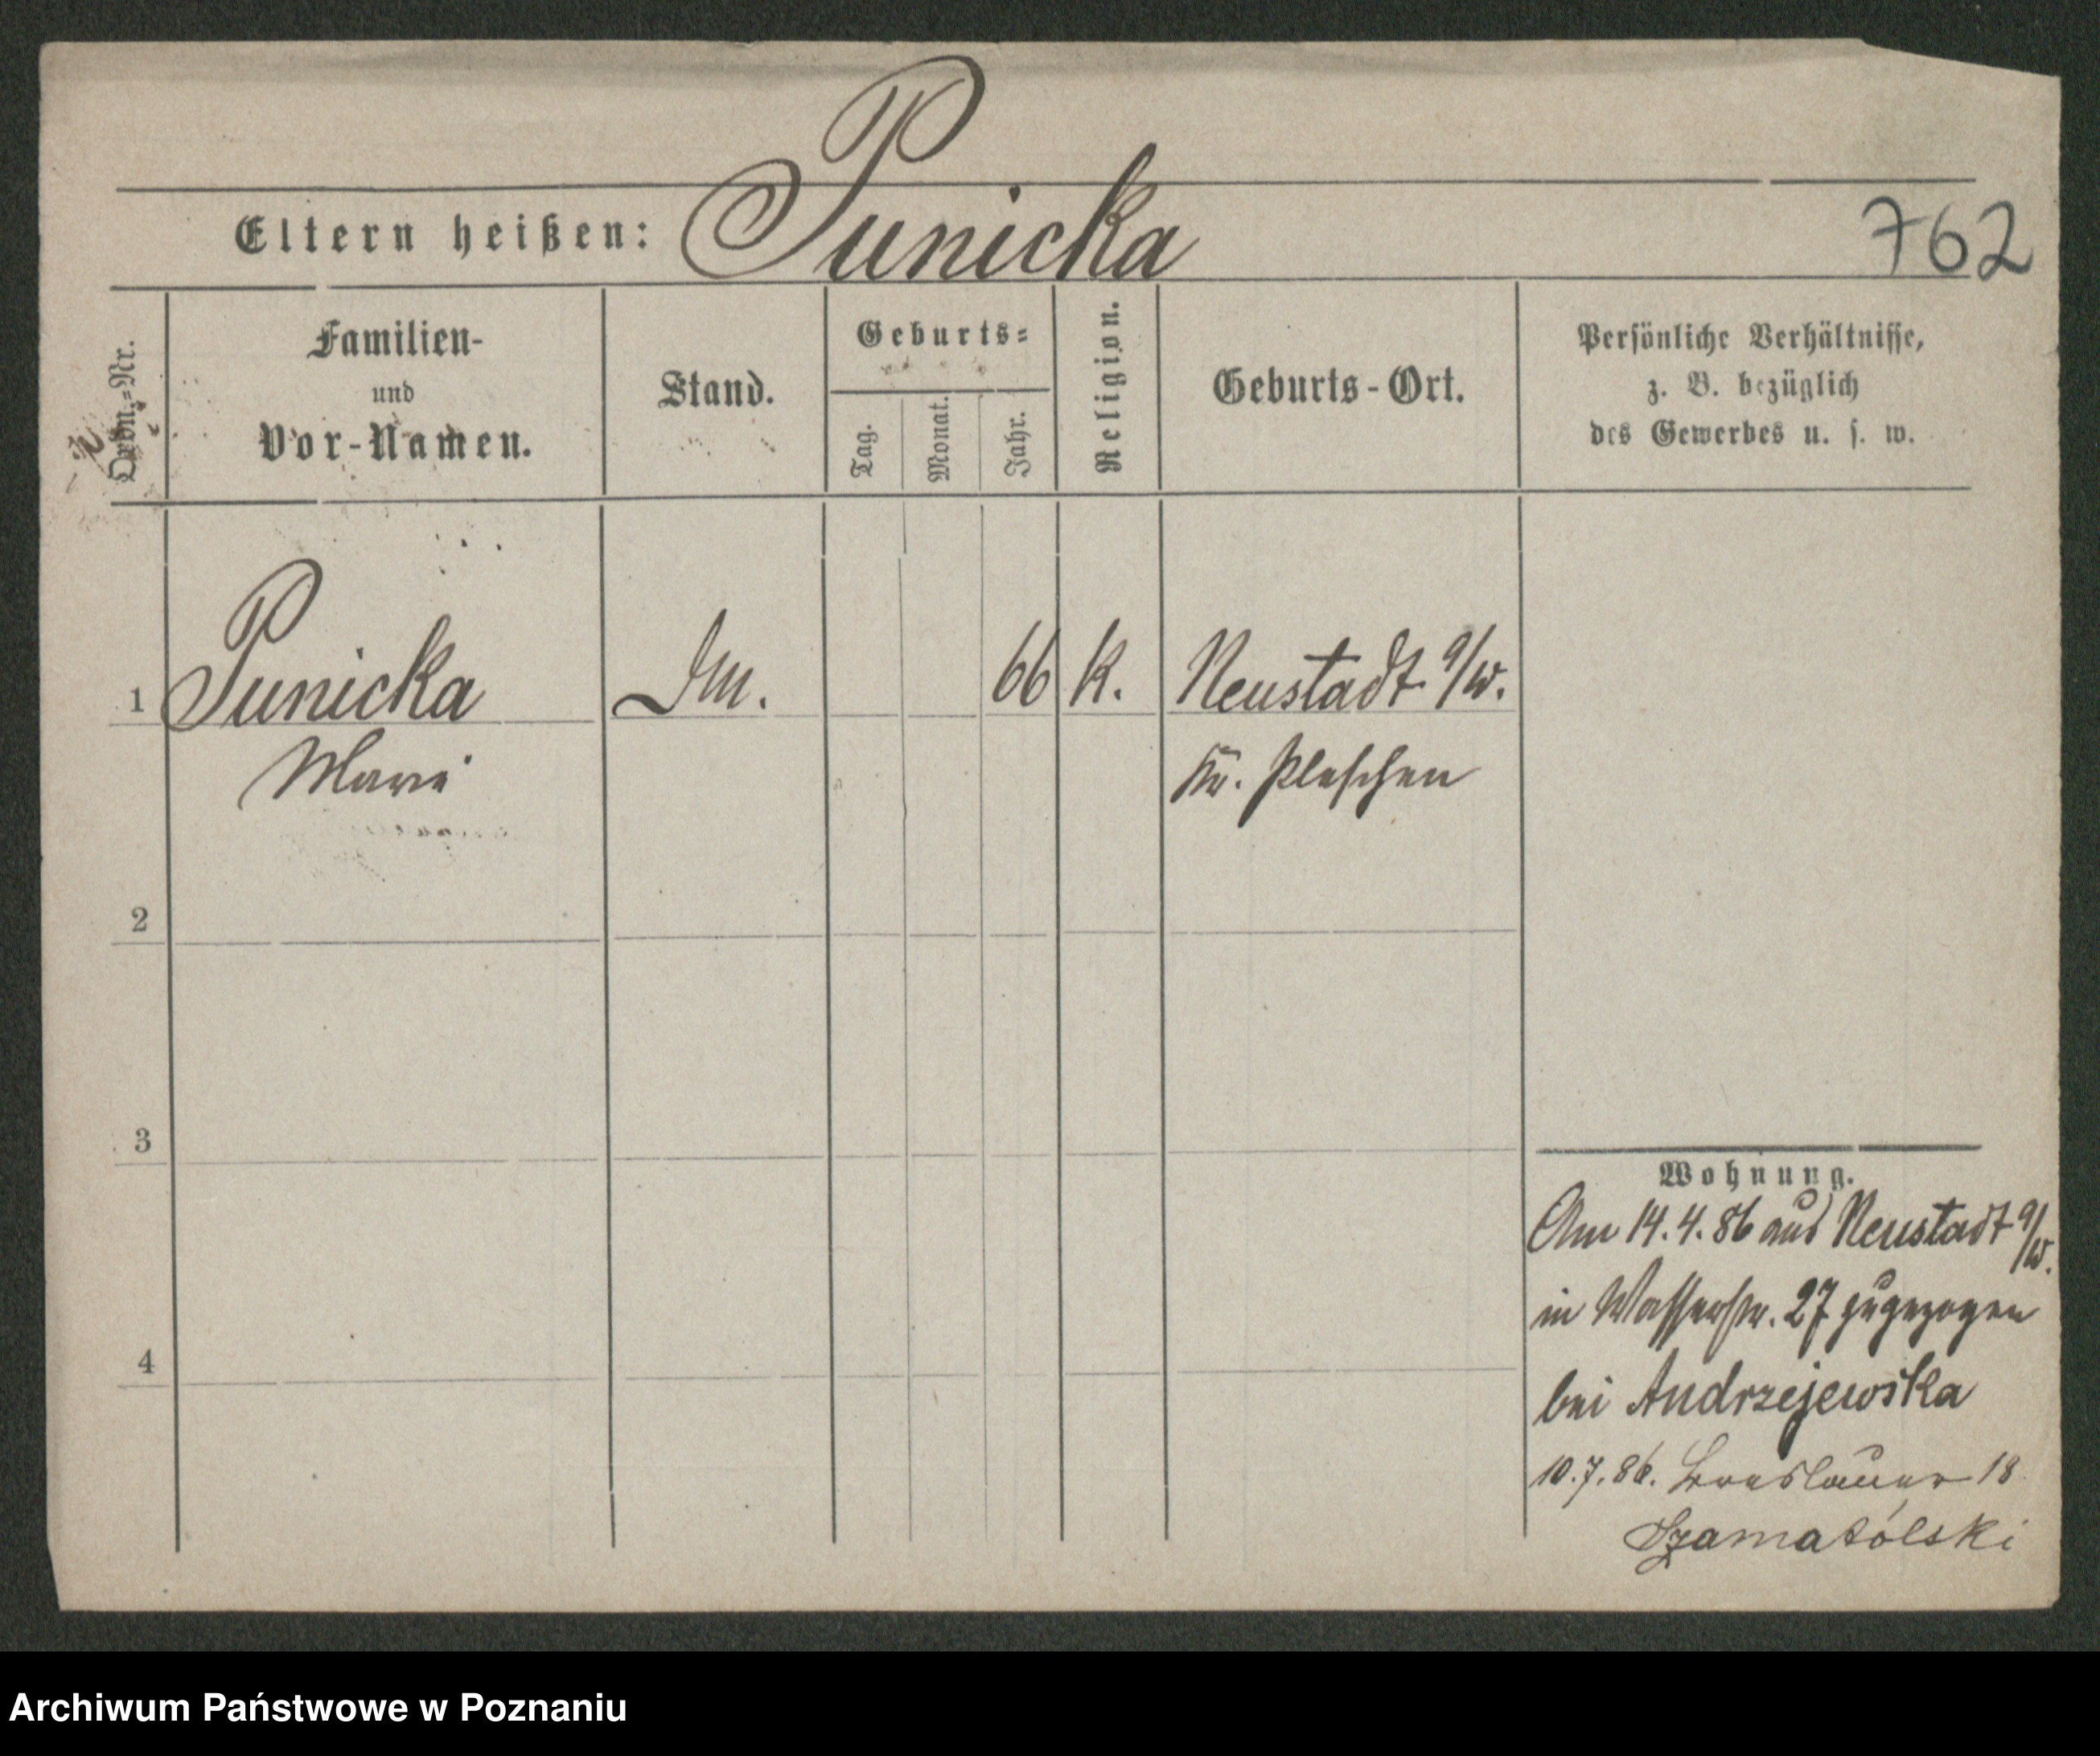 Eltern heißen: Punicka
762
Ordn.=Nr.
Familien-
und
Vor-Namen.
Stand.
Geburts=
Tag.
Monat.
Jahr.
Religion.
Geburts-Ort.
Persönliche Verhältnisse,
z. B. bezüglich
des Gewerbes u. s. w.
1 Punicka 66 k. Neustadt a/W.
Marie
Kr. Pleschen
2
3
4
Wohnung.
Am 14.4.86 aus Neustadt a/W.
in Wasserstr. 27 zugezogen
bei Andrzejewska
10.7.86. Breslauer 18
Szamatólski
Archiwum Państwowe w Poznaniu